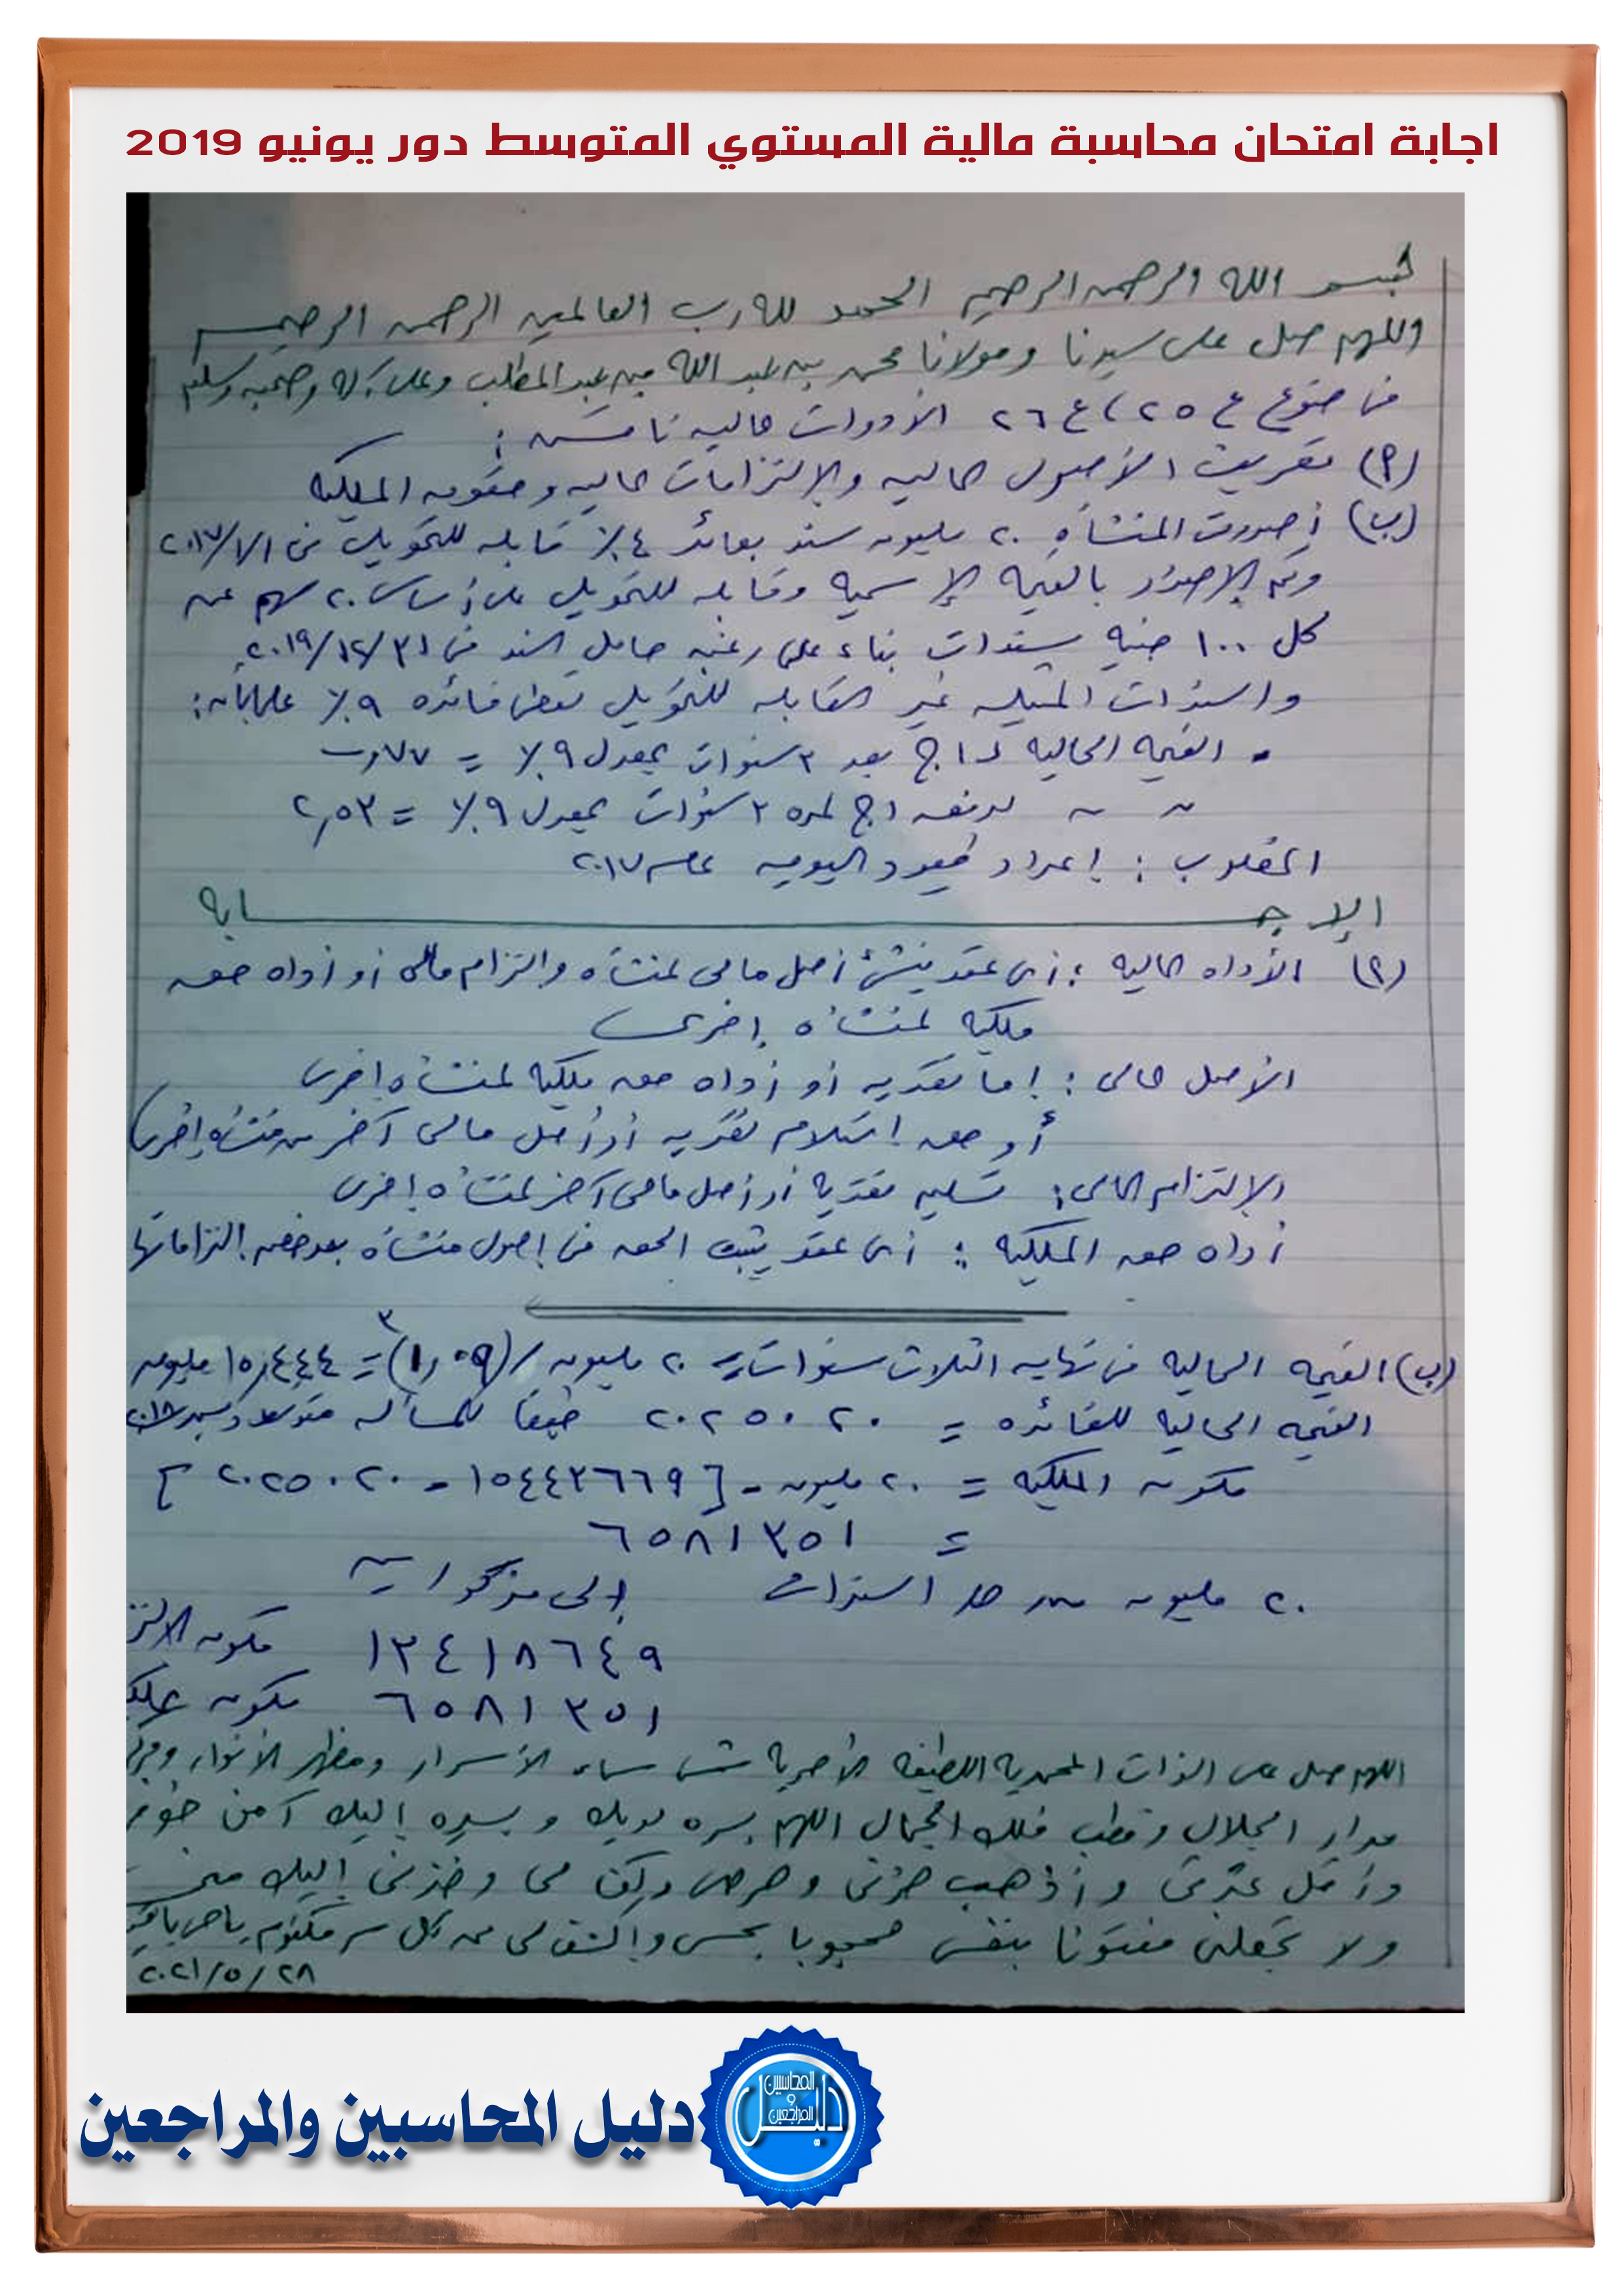 اجابة امتحان محاسبة مالية المستوي المتوسط دور يونيو 2019
بسم الله الرحمن الرحيم الحمد لله رب العالمين الرحمن الرحيم
واللهم صل على سيدنا ومولانا محمد بن عبد الله بن عبد المطلب وعلى آله وصحبه وسلم
فى ضوء ع ٢٥ ، ع ٢٦ الأدوات المالية ناقش :
(أ) تعريف الأصول المالية والإلتزامات المالية وحقوق الملكية
(ب) أصدرت المنشأة ٢٠ مليون سند بعائد ٤٪ قابلة للتحويل فى ١/١/٢٠١٧
وتم الإصدار بالقيمة الإسمية وقابلة للتحويل على أساس ٢٠ سهم عن
كل ١٠٠ جنيه سندات بناء على رغبة حامل السند فى ٣١/١٢/٢٠١٩
والسندات المثيلة غير القابلة للتحويل تعطى فائدة ٩٪ علما بأن :
- القيمة الحالية لـ ١ج بعد ٣ سنوات بمعدل ٩٪ = ٧٧و
〃 〃 لدفعة ١ج لمدة ٣ سنوات بمعدل ٩٪ = ٢,٥٣
المطلوب : إعداد قيود اليومية عام ٢٠١٧
الإجــــــابة
(أ) الأداة المالية : أى عقد ينشئ أصل مالى لمنشأة والتزام مالى أو أداة حق
ملكية لمنشأة أخرى
الأصل المالى : إما نقدية أو أداة حق ملكية لمنشأة أخرى
أو حق استلام نقدية أو أصل مالى آخر من منشأة أخرى
الإلتزام المالى : تسليم نقدية أو أصل مالى آخر لمنشأة أخرى
أداة حق الملكية : أى عقد يثبت الحق فى أصول منشأة بعد خصم التزاماتها
(ب) القيمة الحالية فى نهاية الثلاث سنوات = ٢٠ مليون / (١,٠٩)٣ = ١٥,٤٤٤ مليون
القيمة الحالية للفائدة = ٢٠٢٥٠٢٠ طبقا للمسألة متوسط ديسمبر ٢٠١٨
مكون الملكية = ٢٠ مليون - [ ١٥٤٤٣٦٦٩ - ٢٠٢٥٠٢٠ ]
= ٦٥٨١٣٥١
٢٠ مليون من حـ/ السندات إلى مذكورين
١٣٤١٨٦٤٩ مكون الالتز
٦٥٨١٣٥١ مكون ملكي
اللهم صل على الذات المحمدية اللطيفة الأحدية شمس سماء الأسرار ومظهر الأنوار ومركز
مدار الجلال وقطب فلك الجمال اللهم بسره لديك وبسيره إليك آمن خوفى
وأقل عثرتى وأذهب حزنى وحرصى وكن لى وخذنى إليك منى
ولا تجعلنى مفتونا بنفسى محجوبا بحسى واكشف لى عن كل سر مكتوم ياحى ياقيوم
٢٨/٥/٢٠٢١
دليل المحاسبين والمراجعين
دليل
المحاسبين
و
المراجعين